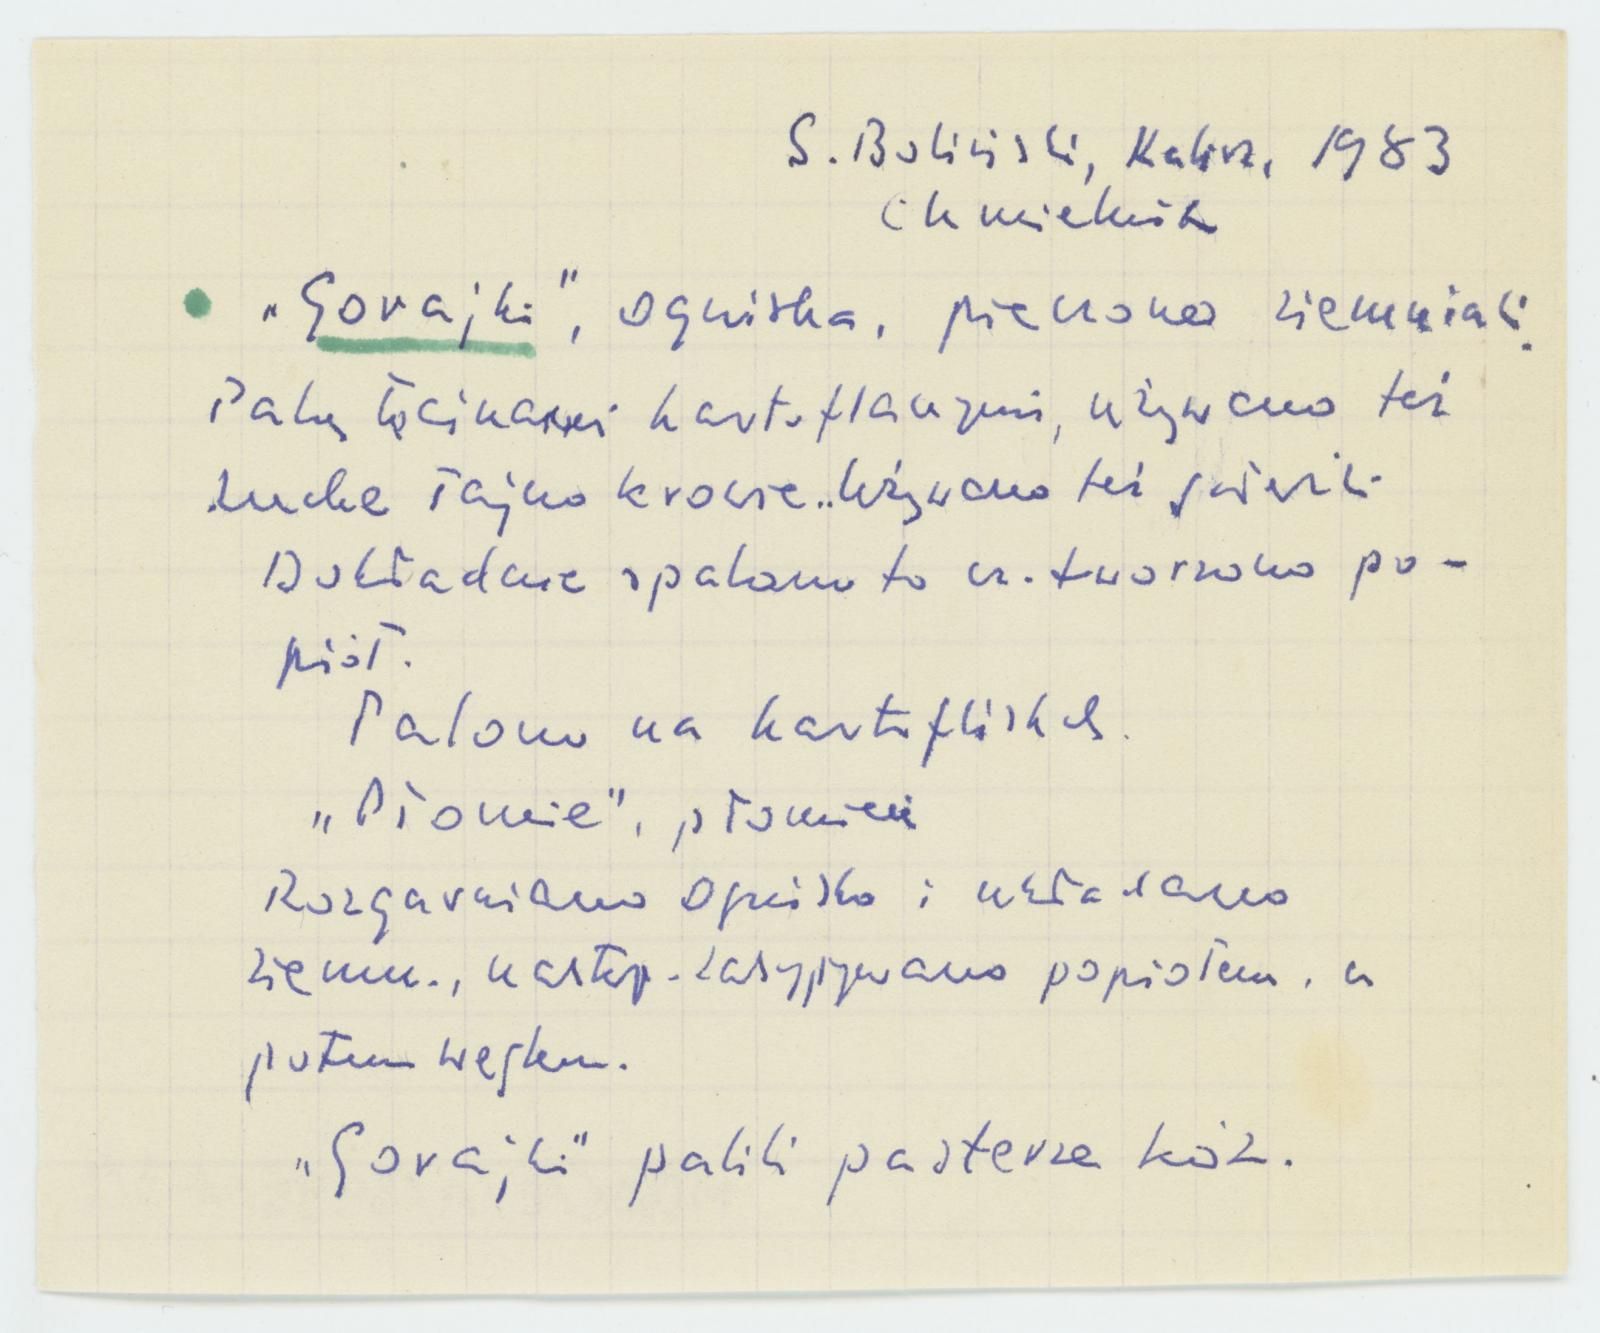 S. Boliński, Kalisz, 1983
Chmielnik
"Gorajki", ogniska, pieczono ziemniaki.
Palą łęcinami kartoflanymi, używano też
suche łajno krowie. Używano też
Dokładnie spalono to cz. tworzono po-
piół.
Palono na kartofliskach.
"Płomie", płomień
Rozgarniano ognisko i układano
ziemn., następ. zasypywano popiołem, a
potem węglem.
"Gorajki" palili pasterze kóz.